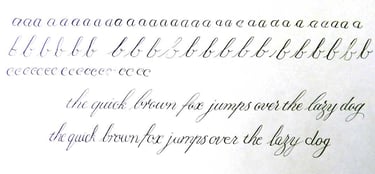 aaa aaaaaaaaaaaaaaaaaaaaaaa
bbbbbb bbbbbbbbbbbbbbbb
ccccccccccccc cccc
the quick brown fox jumps over the lazy dog
the quick brown fox jumps over the lazy dog